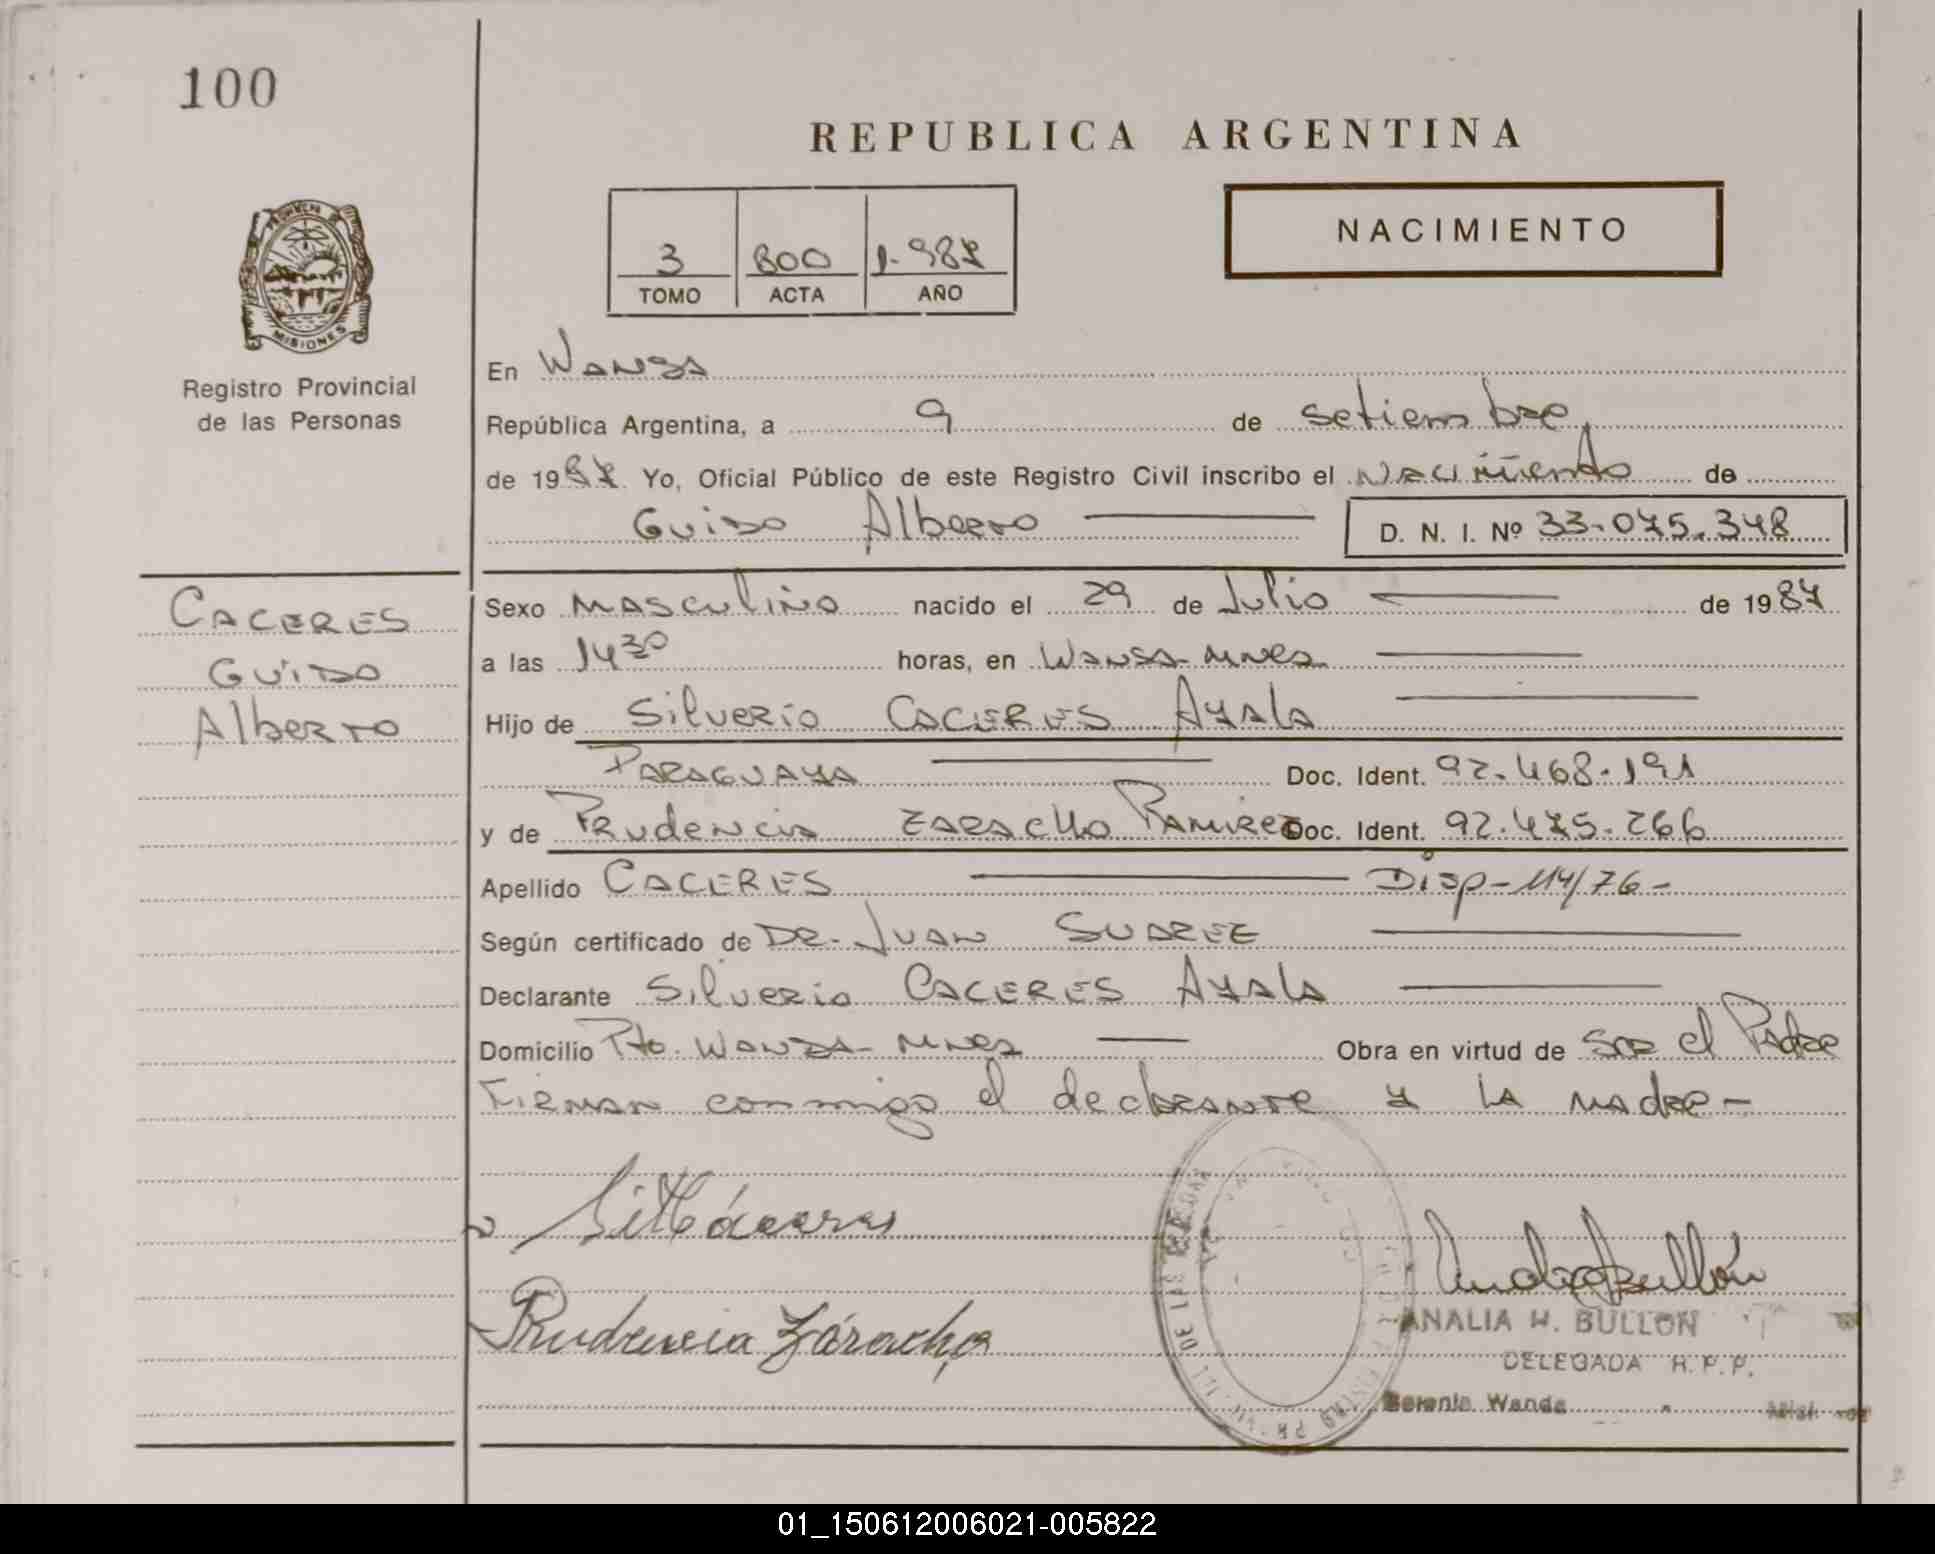 100
REPUBLICA ARGENTINA
NACIMIENTO
3 800 1.987
TOMO ACTA AÑO
PROVINCIA DE
MISIONES
Registro Provincial
de las Personas
En Wanda
República Argentina, a 9 de setiembre
de 1987 Yo, Oficial Público de este Registro Civil inscribo el Nacimiento de
Guido Alberto D. N. I. Nº 33.075.348
CACERES
GUIDO
Alberto
Sexo Masculino nacido el 29 de Julio de 1987
a las 14 30 horas, en Wanda - Mnes
Hijo de Silverio CACERES Ayala
Paraguaya Doc. Ident. 92.468.191
y de Prudencia Zaracho Ramirez Doc. Ident. 92.475.266
Apellido CACERES Disp - 114/76 -
Según certificado de DR. Juan Suarez
Declarante Silverio CACERES Ayala
Domicilio Pto. Wanda - Mnes Obra en virtud de ser el Padre
Firman conmigo el declarante y la madre -
Prudencia Zaracho
ANALIA H. BULLON
DELEGADA R. P. P.
Wanda
01_150612006021-005822